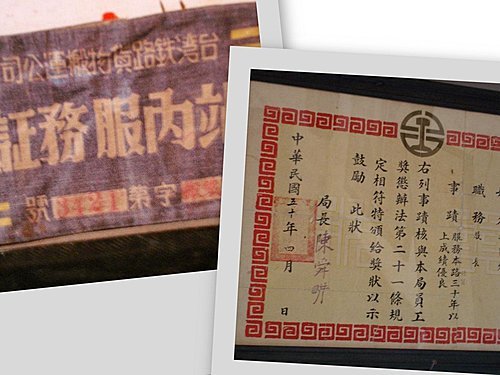 台灣鐵路貨物搬運公司
站内服務証
字第
號
職務 長
事蹟 服務本路三十年以
上成績優良
右列事蹟核與本局員工
獎懲辦法第二十一條規
定相符特頒給獎狀以示
鼓勵 此狀
局長 陳舜畊
中華民國五十年四月 日